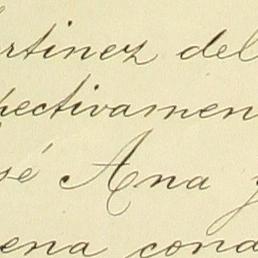 artinez del
pectivamen
sé Ana y
ena cond